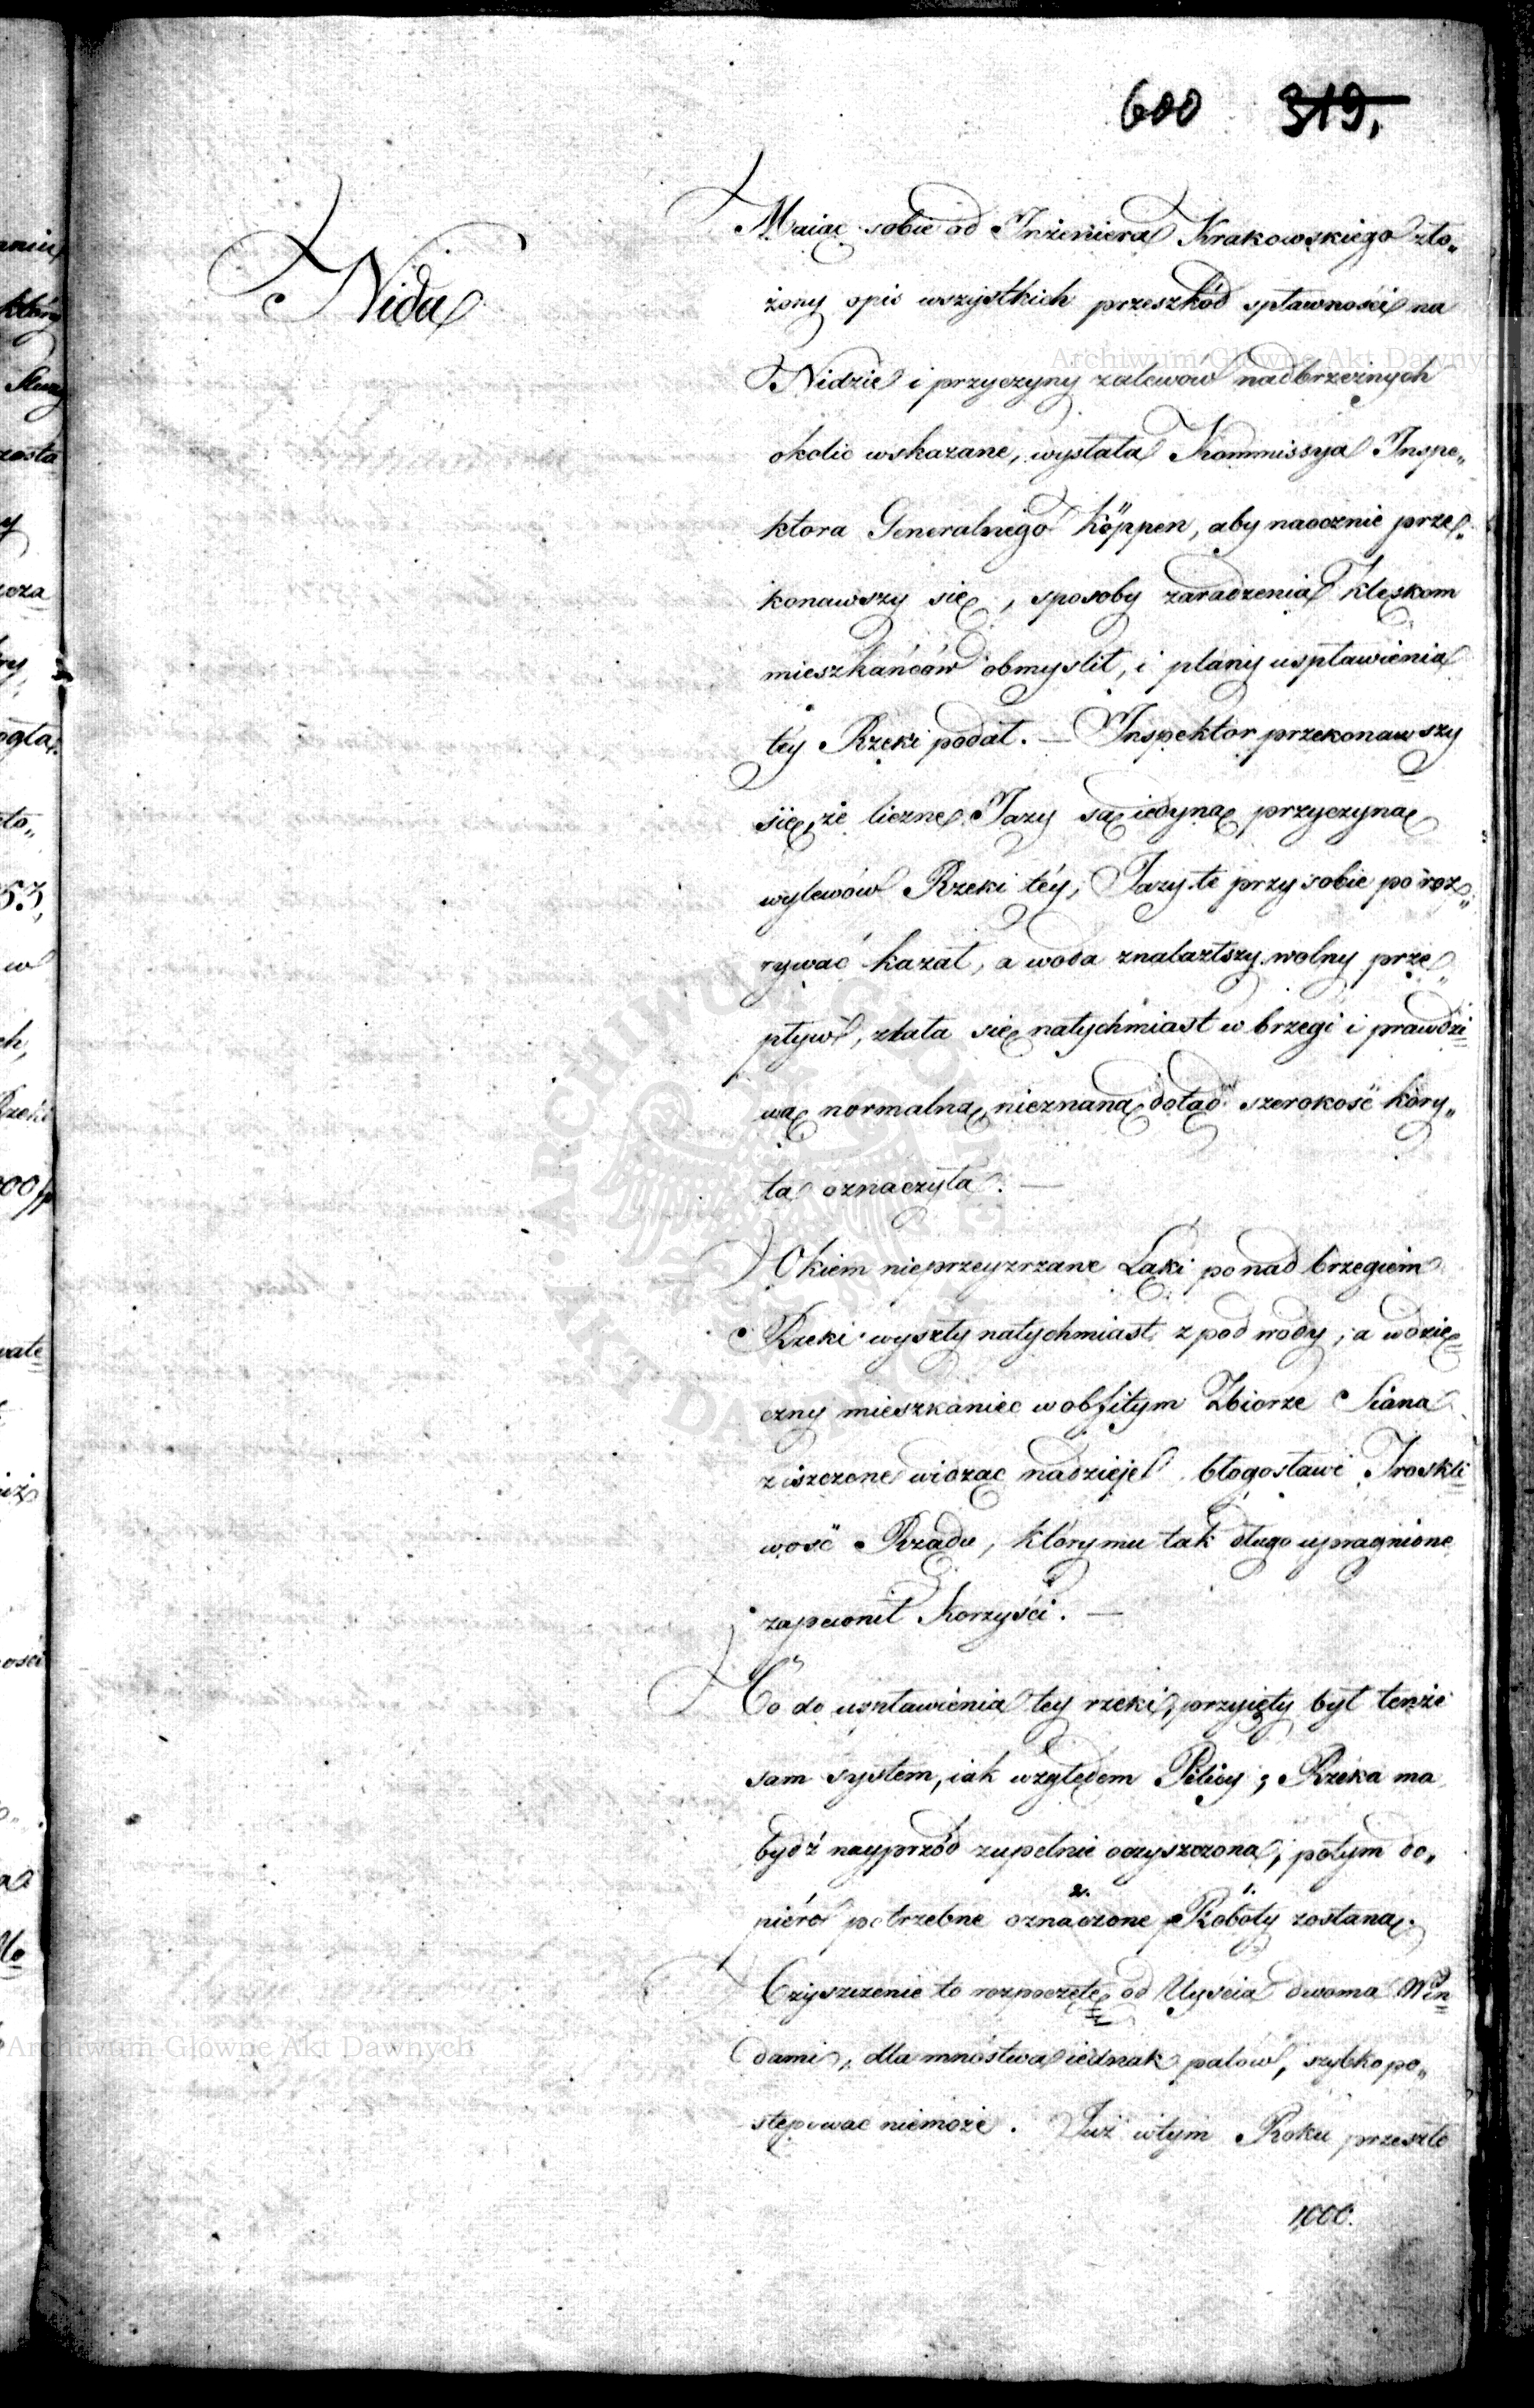 600 319.
Nida
Maiąc sobie od Inżeniera Krakowskiego zło„
żony opis wszystkich przeszkód spławności na
Nidzie i przyczyny zalewów nadbrzeżnych
okolic wskazane, wysłała Kommissya Inspe„
ktora Generalnego Köppen, aby naocznie prze„
konawszy się, sposoby zaradzenia klęskom
mieszkańców obmyslił, i plany uspławienia
téy Rzeki podał. — Inspektor przekonawszy
się, że liczne Jazy są iedyną przyczyną
wylewów Rzeki téy, Jazy te przy sobie poroz„
rywać kazał, a woda znalazłszy wolny prze„
pływ, zlała się natychmiast w brzegi i prawdzi=
wą normalną, nieznaną dotąd szerokość kory„
ta oznaczyła. —
Okiem nieprzeyzrzane Łąki ponad brzegiem
Rzeki wyszły natychmiast z pod wody, a wdzię=
czny mieszkaniec w obfitym Zbiorze Siana
ziszczone widząc nadzieje błogosławi Troskli=
wość Rządu, który mu tak długo upragnione
zapewnił Korzyści. —
Co do uspławienia tey rzeki, przyięty był tenże
sam system, iak względem Pilicy; Rzeka ma
bydź nayprzód zupełnie oczyszczona, potym do„
2. 1.
piéro potrzebne oznaczone Roboty zostaną.
Czyszczenie to rozpoczęte od Uyscia dwoma Win=
dami, dla mnóstwa iednak palów, szybko po„
stępować niemoże. Już w tym Roku przeszło
1,000.
Archiwum Główne Akt Dawnych
Archiwum Główne Akt Dawnych
ARCHIWUM GŁÓWNE AKT DAWNYCH